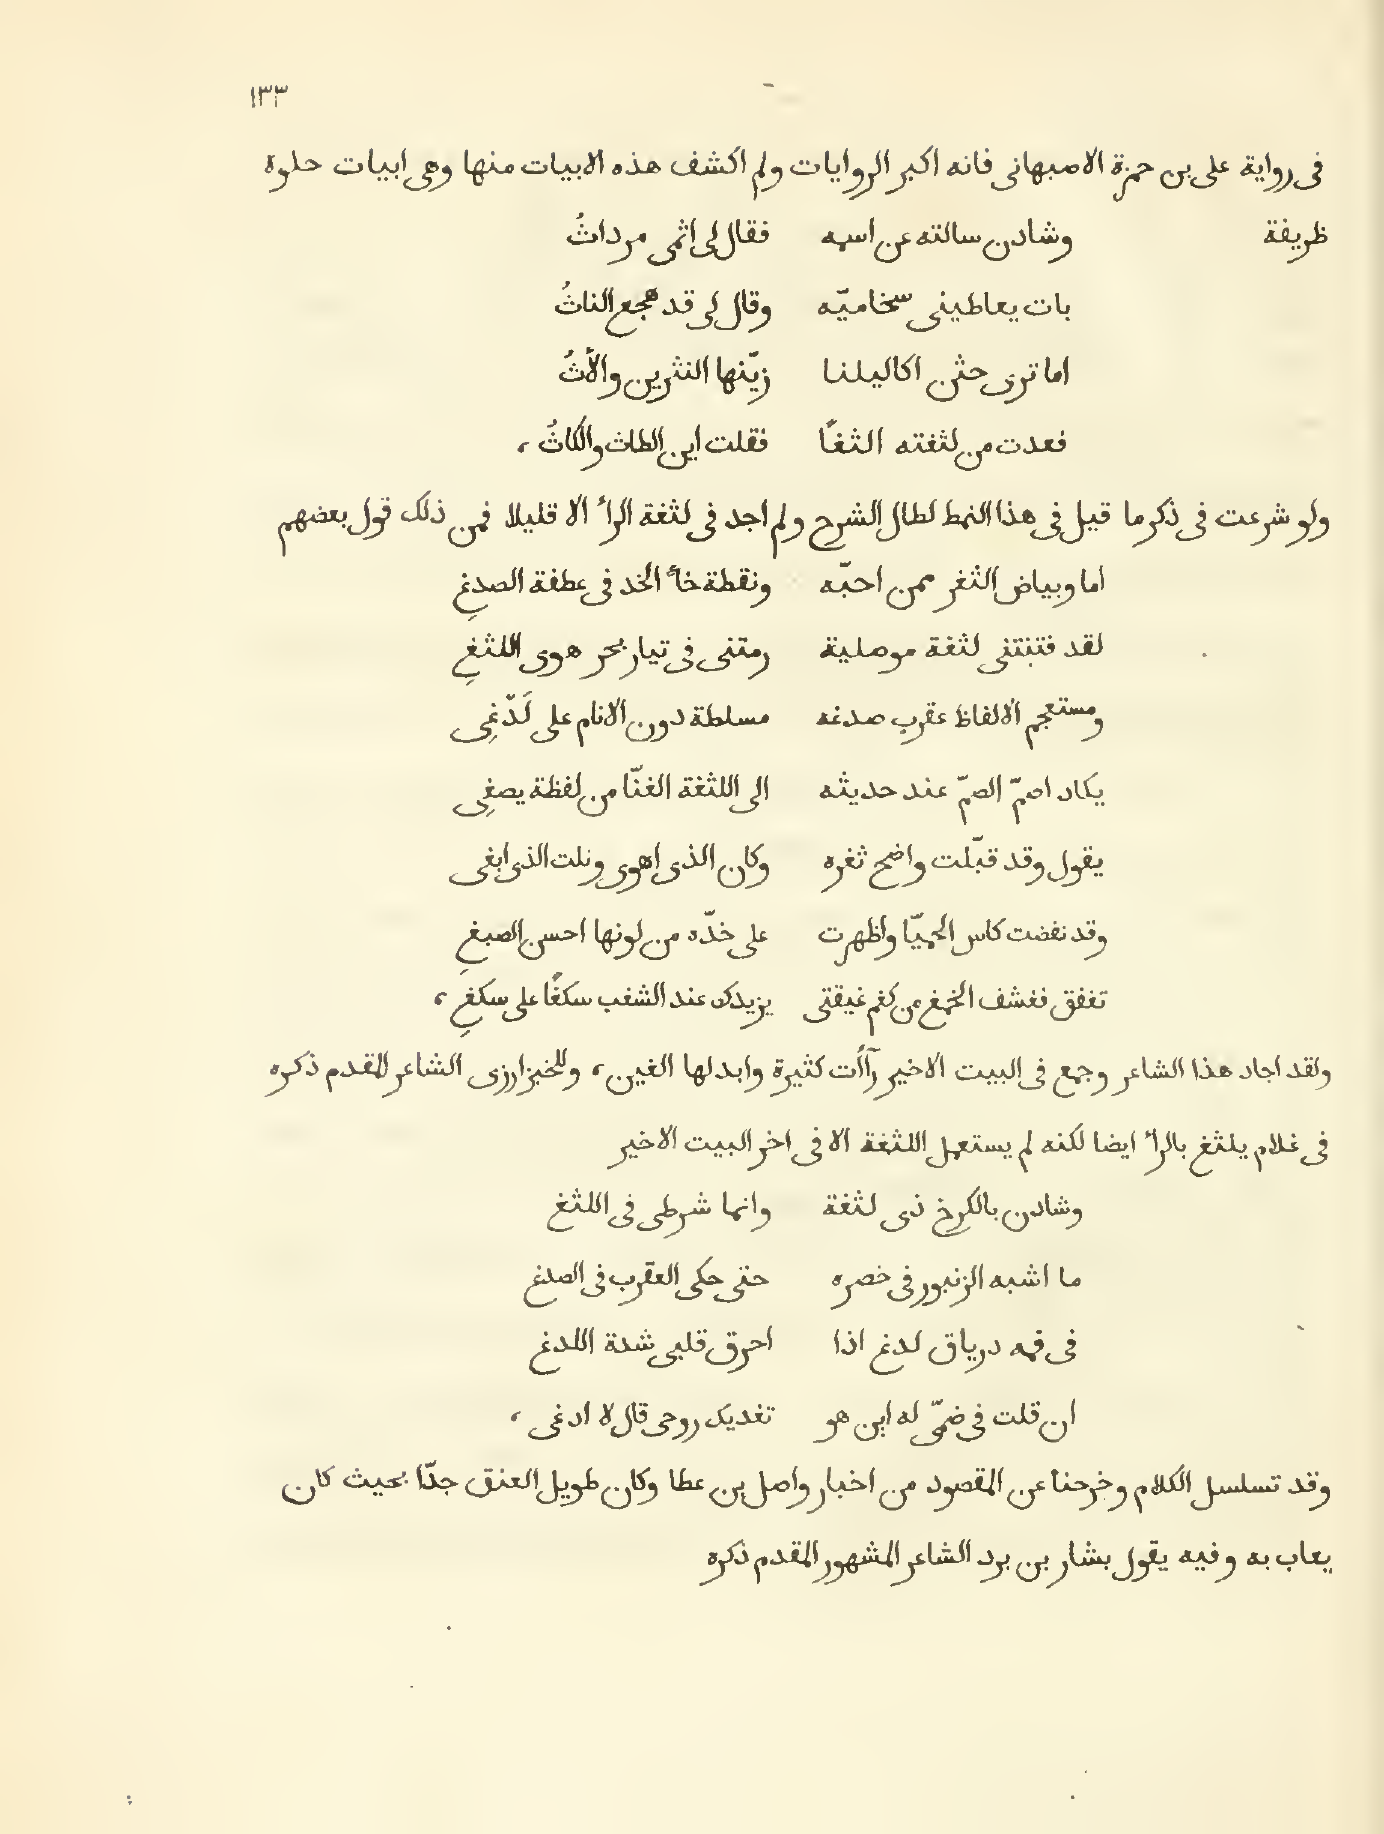 ١٣٣
فى رواية على بن حمزة الاصبهانى فانه اكبر الروايات ولم اكشف هذه الابيات منها وهى ابيات حلوة
ظريفة وشادن سالته عن اسمه فقال لى اثمى مرداثُ
بات يعاطينى سخاميّه وقال لى قد هجع الناثُ
اما ترى حثن اكاليلنا زيّنها النثرين والأثُ
فعدت من لثغته الثغًا فقلت اين الطاث والكاثُ ،
ولو شرعت فى ذكر ما قيل فى هذا النمط لطال الشرح ولم اجد فى لثغة الراء الا قليلا فمن ذلك قول بعضهم
اما وبياض الثغر ممن احبّه ونقطة خاء الخد فى عطفة الصدغِ
لقد فتنتنى لثغة موصلية رمتنى فى تيار بحر هوى اللثغِ
ومستعجم الالفاظ عقرب صدغه مسلطة دون الانام على لَدْغِى
يكاد اصمّ الصمّ عند حديثه الى اللثغة الغنّا من لفظة يصغِى
يقول وقد قبّلت واضح ثغره وكان الذى اهوى ونلت الذى ابغى
وقد نفضت كاس الحميّا واظهرت على خدّه من لونها احسن الصبغِ
تغفق فغشف الخمغ من كغم غيقتى يزيدك عند الشغب سكغًا على سكغِ ،
ولقد اجاد هذا الشاعر وجمع فى البيت الاخير رآأت كثيرة وابدلها الغين ، وللخبزارزى الشاعر المقدم ذكره
فى غلام يلثغ بالراء ايضا لكنه لم يستعمل اللثغة الا فى اخر البيت الاخير
وشادن بالكرخ ذى لثغة وانما شرطى فى اللثغ
ما اشبه الزنبور فى خصره حتى حكى العقرب فى الصدغ
فى فمه درياق لدغ اذا احرق قلبى شدة اللدغ
ان قلت فى ضمّى له اين هو تغديك روحى قال لا ادغى ،
وقد تسلسل الكلام وخرجنا عن المقصود من اخبار واصل بن عطا وكان طويل العنق جدّا بحيث كان
يعاب به وفيه يقول بشار بن برد الشاعر المشهور المقدم ذكره